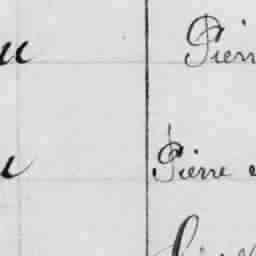 u Pierr
u Pierre e